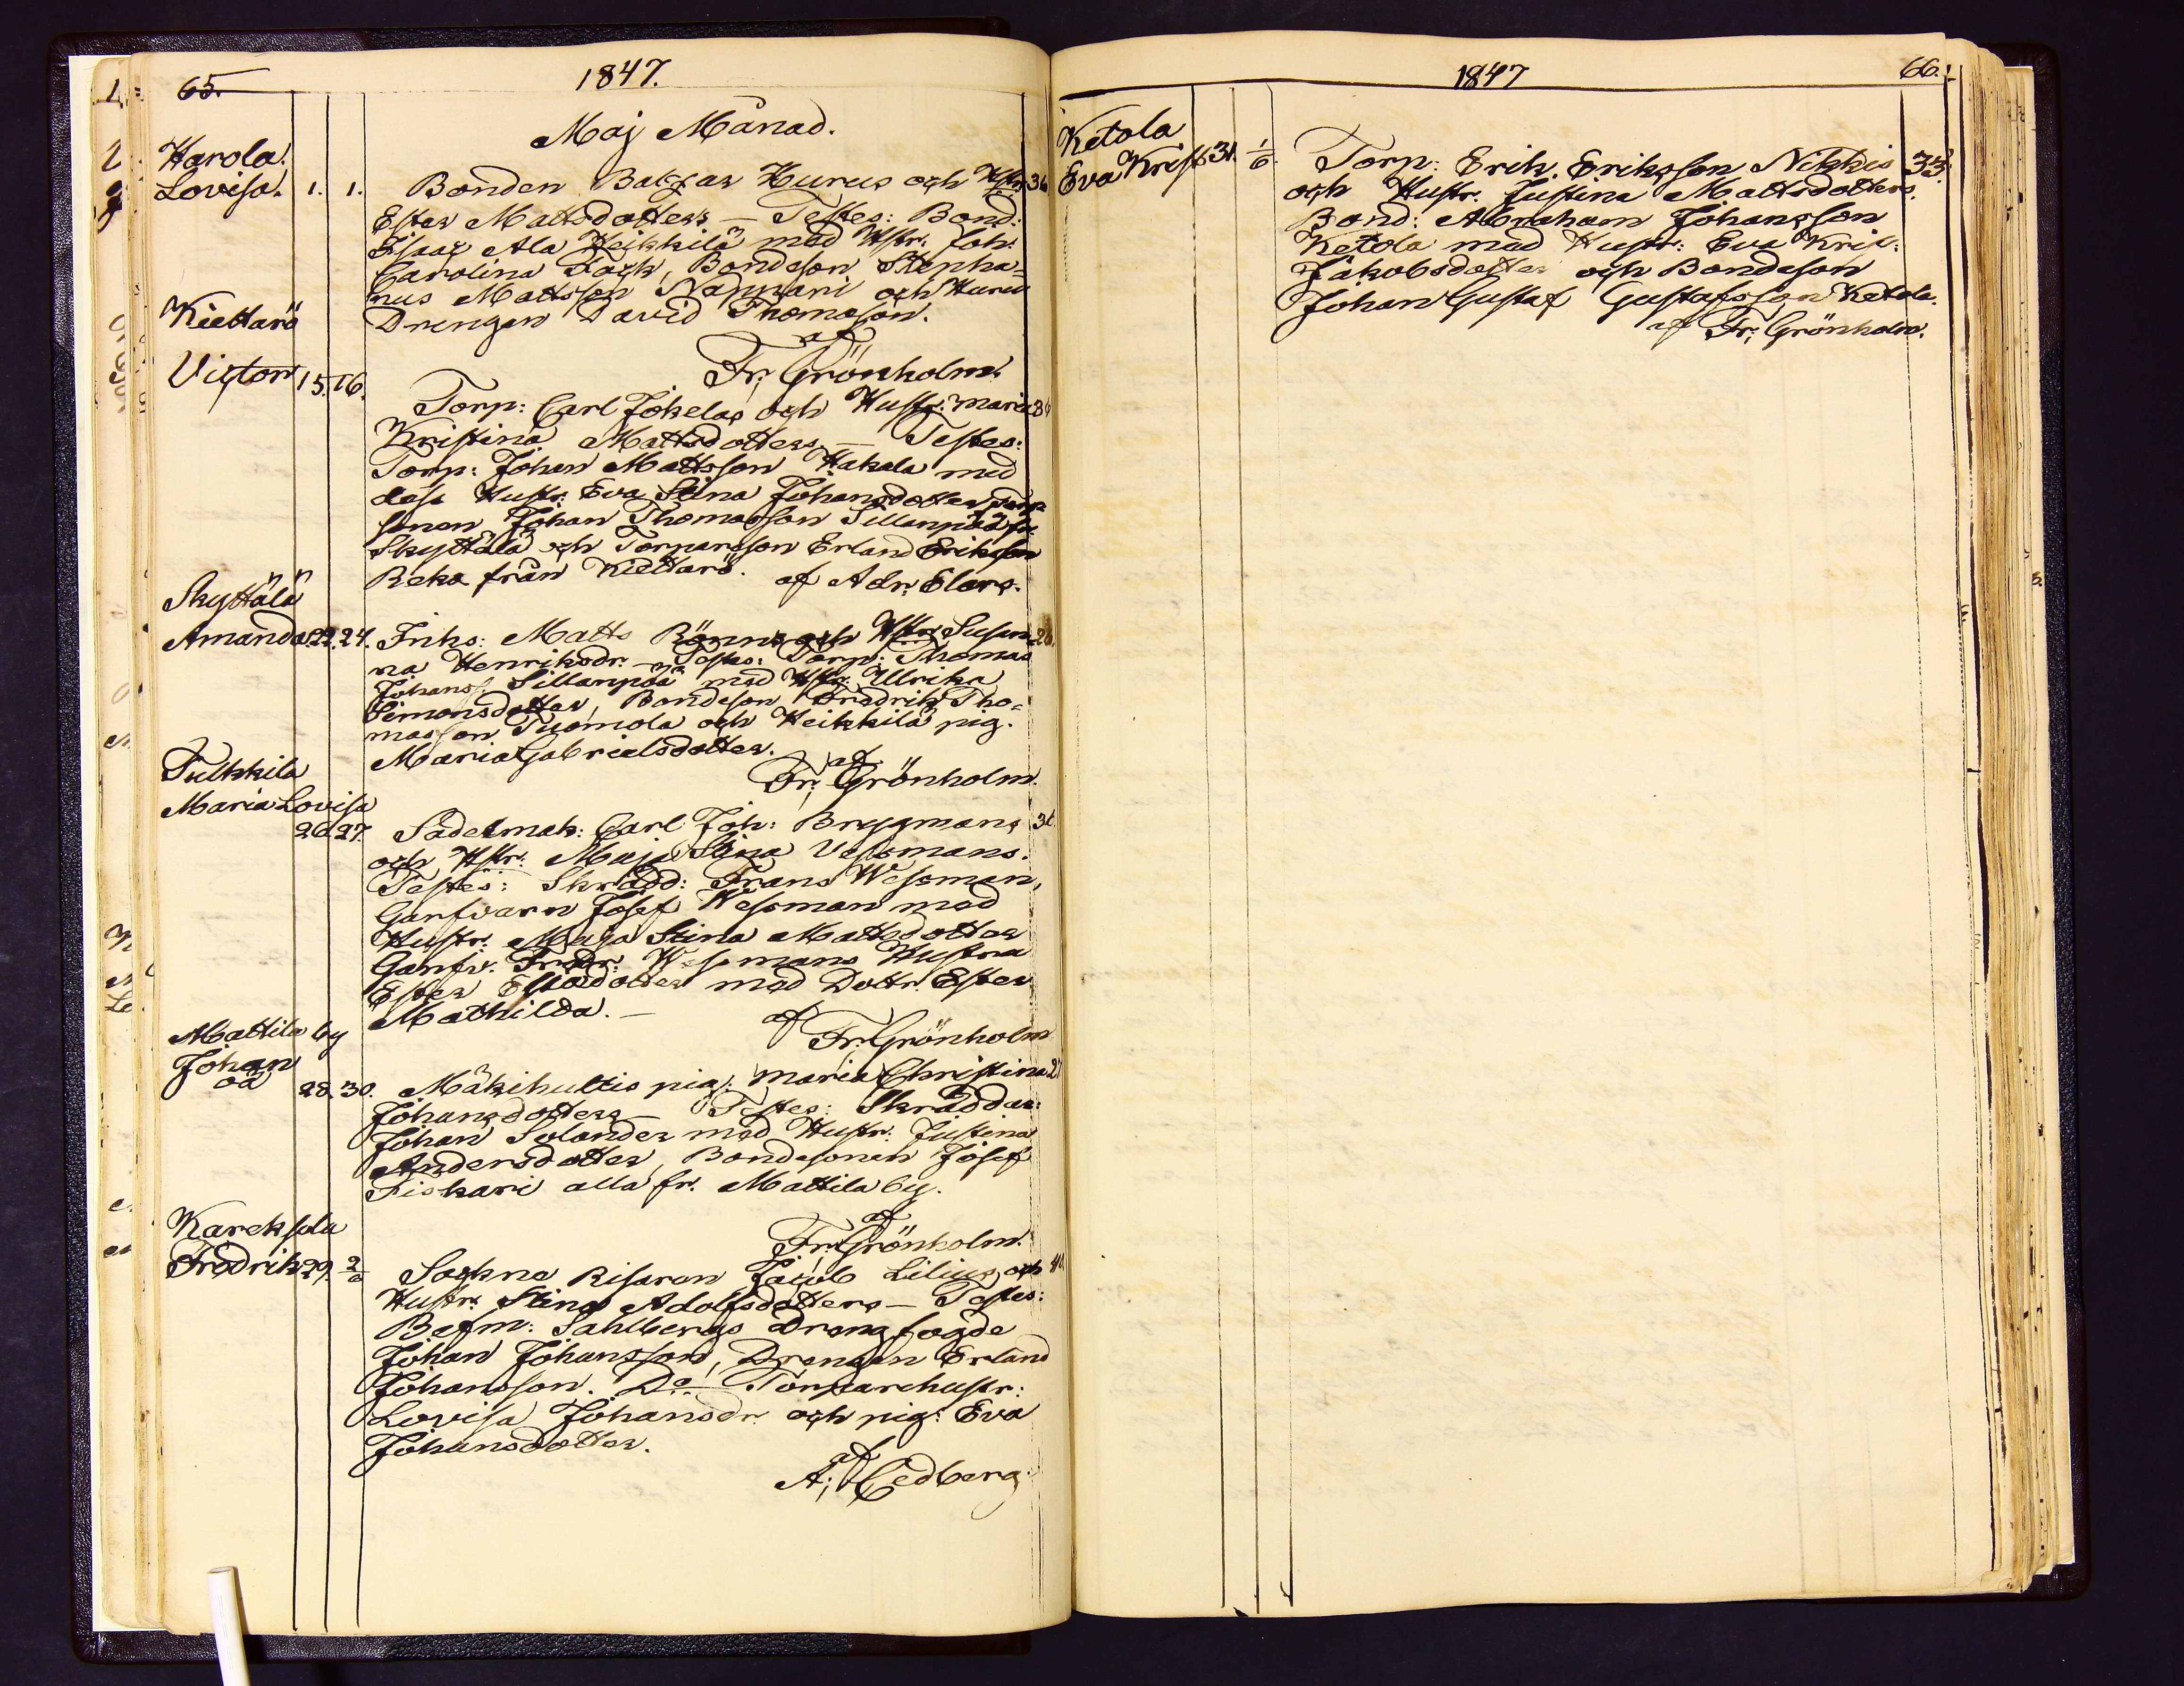 65.
1847.
Maj Månad.
Harola.
Lovisa. 1. 1. Bonden Baltzar Hurus och Hstr. 36
Ester Mattsdotters — Testes: Bond:
Isaac Ala Heikkilä med Hstr. Joh:
Carolina Fock, Bondeson Stepha=
nus Mattsson Nappari och Hurus
Kiettarö
Drengen David Thomasson.
af
Fr: Grönholm.
Victor 15. 16.
Torp: Carl Jokelas och Hustr: Maria 36
Kristina Mattsdotters — Testes:
Torp: Johan Mattsson Hakala med
dess Hustr: Eva Stina Johansdotter, Torp=
sonen Johan Thomasson Sillanpää fr.
Skyttälä och Torpareson Erland Eriksson
Reko från Kiettarö. af Adr: Elers.
Skyttälä
Amanda 22. 24. Inhs: Matts Rönns och Hstr: Susan= 26.
na Henriksdr. — Testes: Torp: Thomas
Johanss. Sillanpää med Hstr: Ulrika
Simonsdotter, Bondeson Fredrik Tho=
masson Tuomola och Heikkilä pig.
Maria Gabrielsdotter.
af
Fr: Grönholm.
Tulkkila
Maria Lovisa
26. 27. Sadelmak: Carl Joh: Brygmans 31.
och Hstr: Maja Stina Vessmans.
Testes: Skrädd: Frans Wessman,
Garfvaren Josef Wessman med
Hustr: Maja Stina Mattsdotter
Garfv. Fredr: Wessmans Hustru
Ester Esaiædotter med Dottr. Ester
Mathilda. — af
Fr: Grönholm
Mattila by
Johan
oä 28. 30. Mäkihultis pig: Maria Christina 21
Johansdotters — Testes: Skräddar:
Johan Solander med Hustr: Justina
Andersdotter, Bondesonen Josef
Fiskari alla fr. Mattila by.
af
Fr: Grönholm.
Kareksela
Fredrik 29. 2/6 Sockne Risaren Jacob Lilius och 40.
Hustr: Stina Adolfsdotters — Testes:
Befm: Sahlbergs Drengfogde
Johan Johansson, Drengen Erland
Johansson. Do Torparehustr:
Lovisa Johansdr. och pig: Eva
Johansdotter.
af
A: Cedberg.
1847
66.
Ketola
Eva Krist. 31. 1/6. Torp: Erik Eriksson Nikkis 33.
och Hustr. Justina Mattsdotters.
Bond: Abraham Johansson
Ketola med Hustr: Eva Kris:
Jakobsdotter och Bondeson
Johan Gustaf Gustafsson Ketola.
af Fr: Grönholm.